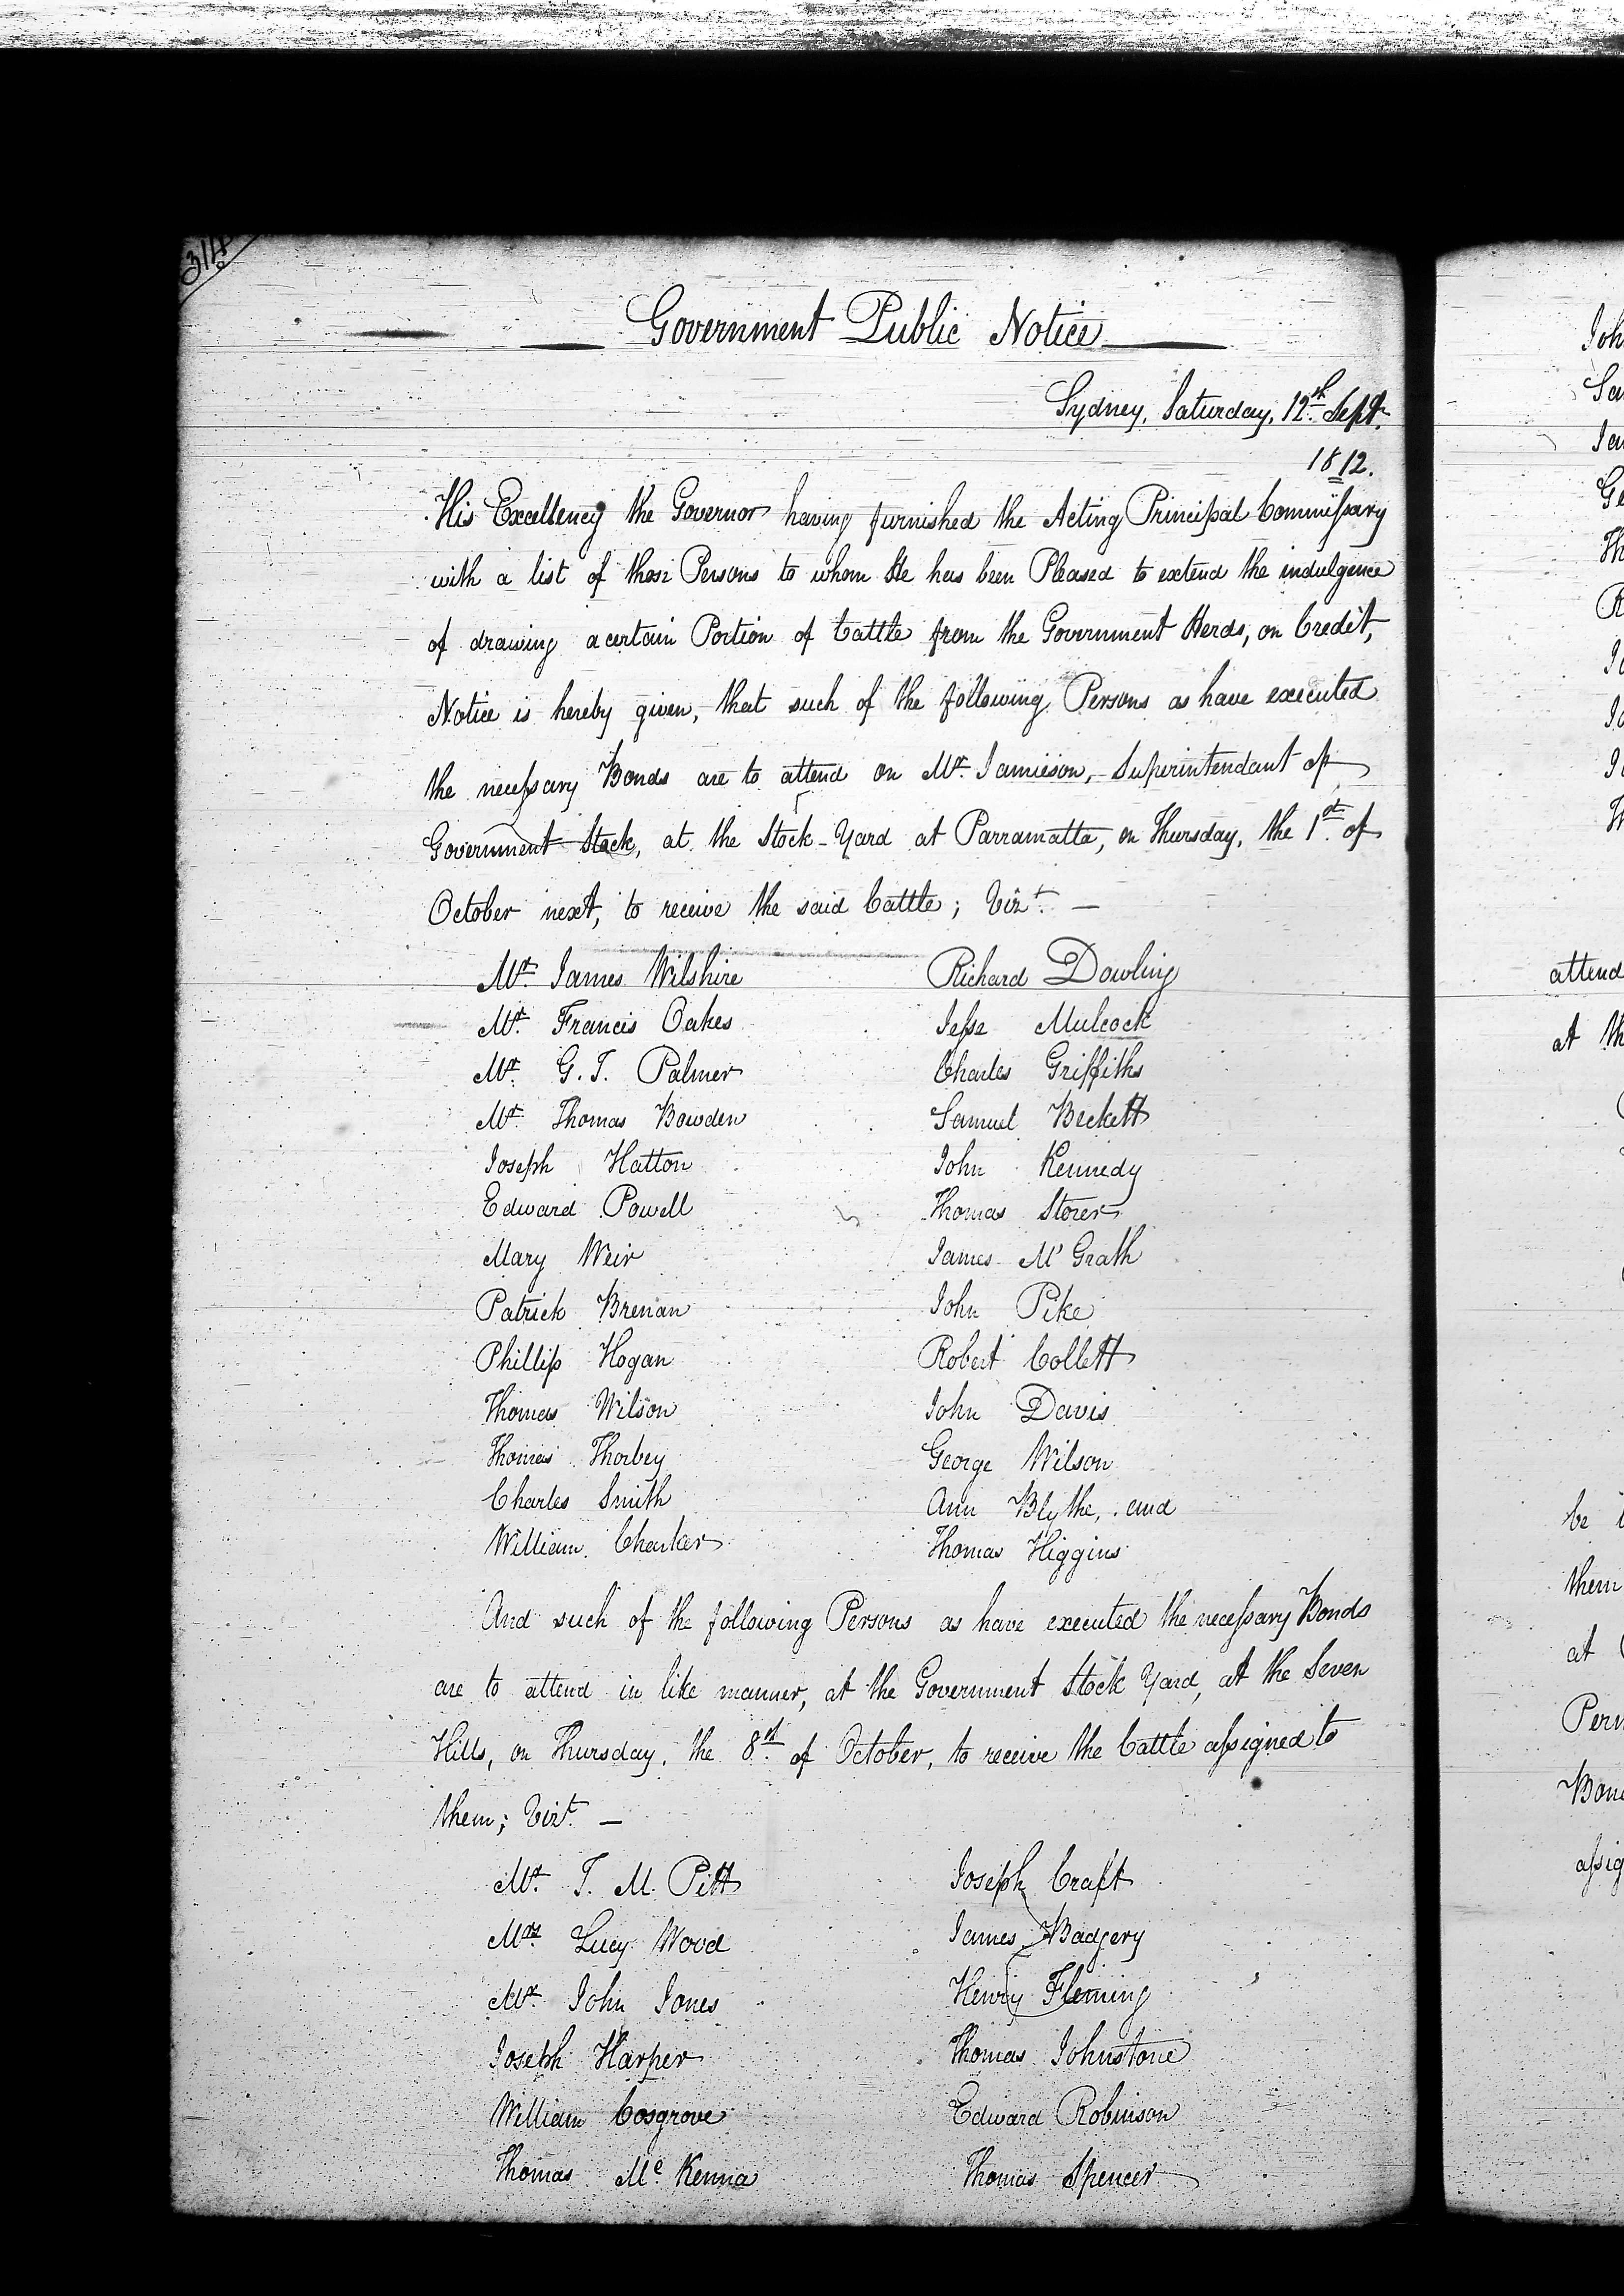 314
Government Public Notice
Sydney, Saturday, 12th Sept.
1812.
His Excellency the Governor having furnished the Acting Principal Commissary
with a list of those Persons to whom He has been Pleased to extend the indulgence
of drawing a certain Portion of Cattle from the Government Herds, on Credit,
Notice is hereby given, that such of the following Persons as have executed
the necessary Bonds are to attend on Mr. Jamieson, Superintendant of
Government Stock, at the Stock-Yard at Parramatta, on Thursday, the 1st of
October next, to receive the said Cattle; Vizt. —
Mr. James Wilshire
Mr. Francis Oakes
Mr. G. T. Palmer
Mr. Thomas Bowden
Joseph Hatton
Edward Powell
Mary Weir
Patrick Brenan
Phillip Hogan
Thomas Wilson
Thomas Thorbey
Charles Smith
William Chanker
Richard Dowling
Jesse Mulcock
Charles Griffiths
Samuel Beckett
John Kennedy
Thomas Storer
James McGrath
John Pike
Robert Collett
John Davis
George Wilson
Ann Blythe, and
Thomas Higgins
And such of the following Persons as have executed the necessary Bonds
are to attend in like manner, at the Government Stock Yard, at the Seven
Hills, on Thursday, the 8th of October, to receive the Cattle assigned to
them; Vizt. —
Mr. T. M. Pitt
Mrs. Lucy Wood
Mr. John Jones
Joseph Harper
William Cosgrove
Thomas Mc. Kenna
Joseph Craft
James Badgery
Henry Fleming
Thomas Johnstone
Edward Robinson
Thomas Spencer
Joh
Sa
Ja
Ge
Th
R
attend
at th
be
them
at
Per
Bon
assig